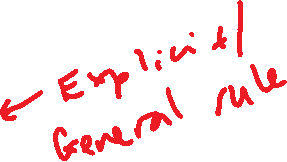 ← Explicit/
General rule